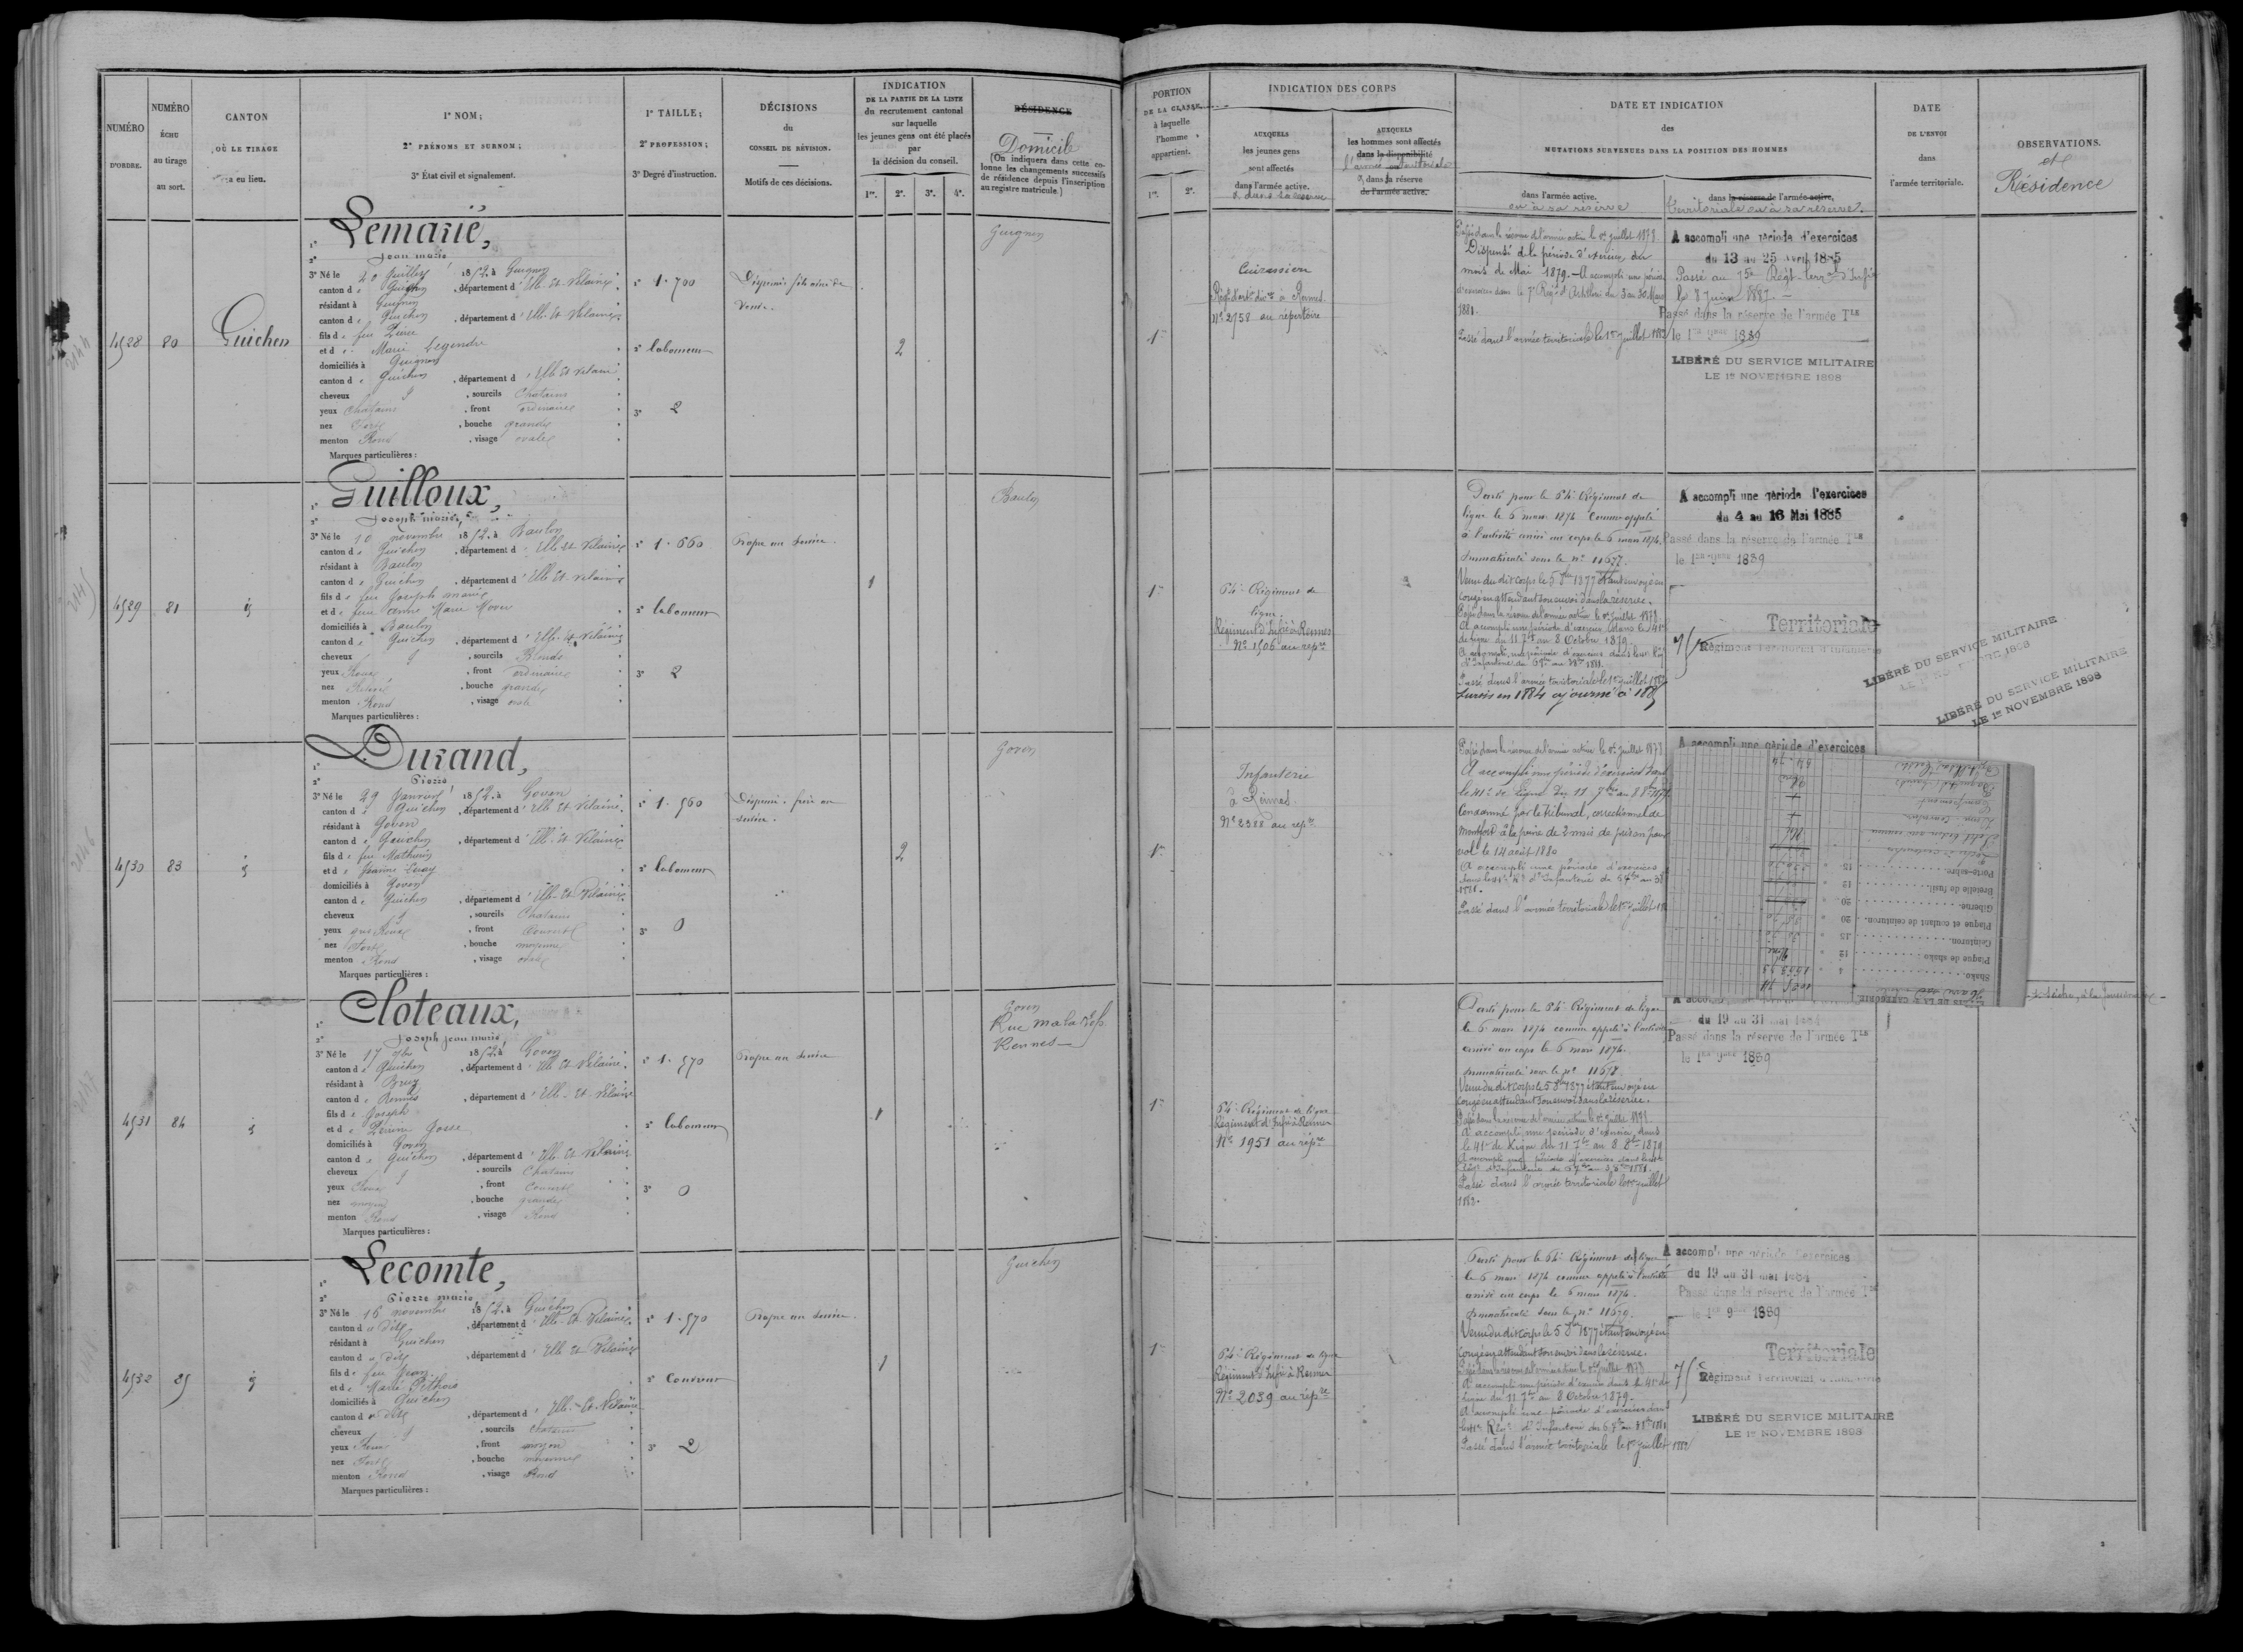 NUMÉRO
D'ORDRE.
NUMÉRO
ÉCHU
au tirage
au sort.
CANTON
OÙ LE TIRAGE
a eu lieu.
1° NOM;
2° PRÉNOMS ET SURNOM;
3° État civil et signalement.
1° TAILLE;
2° PROFESSION;
3° Degré d'instruction.
DÉCISIONS
du
CONSEIL DE RÉVISION.
Motifs de ces décisions.
INDICATION
DE LA PARTIE DE LA LISTE
du recrutement cantonal
sur laquelle
les jeunes gens ont été placés
par
la décision du conseil.
1re. 2e. 3e. 4e.
RÉSIDENCE
Domicile
(On indiquera dans cette co-
lonne les changements successifs
de résidence depuis l'inscription
au registre matricule.)
PORTION
DE LA CLASSE
à laquelle
l'homme
appartient.
1re. 2e.
INDICATION DES CORPS
AUXQUELS
les jeunes gens
sont affectés
dans l'armée active.
& dans sa réserve
AUXQUELS
les hommes sont affectés
dans la disponibilité
l'armée territoriale
& dans sa réserve
de l'armée active.
DATE ET INDICATION
des
MUTATIONS SURVENUES DANS LA POSITION DES HOMMES
dans l'armée active.
ou à sa réserve
dans la réserve de l'armée active,
territoriale ou à sa réserve.
DATE
DE L'ENVOI
dans
l'armée territoriale.
OBSERVATIONS.
et
Résidence
4528
80
Guichen
Lemarié,
2° Jean marie
3° Né le 20 Juillet 1852, à Guignen
canton de Guichen, département d'Ille-Et-Vilaine
résidant à Guignen
canton de Guichen, département d'Ille-Et-Vilaine
fils de feu Pierre
et de Marie Legendre
domiciliés à Guignen
canton de Guichen, département d'Ille-Et-Vilaine
cheveux, sourcils Chatains
yeux Chatains, front ordinaire
nez Fort, bouche grande
menton Rond, visage ovale
Marques particulières :
1° 1.700
2° laboureur
3° 2
Dispensé fils aîné de
veuve.
2
Guignen
1re
Cuirassier
Régt d'artie divre à Rennes.
N° 2758 au répertoire
Passé dans la réserve de l'armée active le 1er Juillet 1878.
Dispensé de la période d'exercices du
mois de Mai 1879. — A accompli une période
d'exercices dans le 7e Régt d'Artillerie du 3 au 30 Mars
1881.
Passé dans l'armée territoriale le 1er Juillet 1882
A accompli une période d'exercices
du 13 au 25 Avril 1885
Passé au 75e Régt terral d'Infie
le 8 Juin 1887.
Passé dans la réserve de l'armée TLE
le 1er 9bre 1889
LIBÉRÉ DU SERVICE MILITAIRE
LE 1er NOVEMBRE 1898
4529
81
id
Guilloux,
2° Joseph marie
3° Né le 10 novembre 1852, à Baulon
canton de Guichen, département d'Ille-Et-Vilaine
résidant à Baulon
canton de Guichen, département d'Ille-Et-Vilaine
fils de feu Joseph marie
et de feue Anne Marie
domiciliés à Baulon
canton de Guichen, département d'Ille-Et-Vilaine
cheveux, sourcils Blonds
yeux Roux, front ordinaire
nez, bouche grande
menton Rond, visage ovale
Marques particulières :
1° 1.660
2° laboureur
3° 2
Propre au service.
1
Baulon
1re
64e Régiment de
ligne.
Régiment d'Infie à Rennes
N° 1506 au répre
Parti pour le 64e Régiment de
ligne le 6 mars 1874 comme appelé
à l'activité arrivé au corps le 6 mars 1874.
Immatriculé sous le n° 11677.
Venu du dit corps le 5 8bre 1877 étant envoyé en
congé en attendant son envoi dans la réserve.
Passé dans la réserve de l'armée active le 1er Juillet 1878
A accompli une période d'exercices dans le 41e
de ligne du 11 7bre au 8 Octobre 1879.
A accompli une période d'exercices dans le 41e Rgt
d'Infanterie du 6 7bre au 3 8bre 1881.
Passé dans l'armée territoriale le 1er Juillet 1882
Sursis en 1884 ajourné à 1885
A accompli une période d'exercices
du 4 au 16 Mai 1885
Passé dans la réserve de l'armée TLE
le 1er 9bre 1889
Territoriale
75e Régiment Territorial d'Infanterie
LIBÉRÉ DU SERVICE MILITAIRE
LE 1er NOVEMBRE 1898
LIBÉRÉ DU SERVICE MILITAIRE
LE 1er NOVEMBRE 1898
4530
83
id
Durand,
2° Pierre
3° Né le 29 Janvier 1852, à Goven
canton de Guichen, département d'Ille-Et-Vilaine
résidant à Goven
canton de Guichen, département d'Ille-Et-Vilaine
fils de feu Mathurin
et de Jeanne
domiciliés à Goven
canton de Guichen, département d'Ille-Et-Vilaine
cheveux, sourcils Chatains
yeux gris Roux, front Couvert
nez Fort, bouche moyenne
menton Rond, visage ovale
Marques particulières :
1° 1.560
2° laboureur
3° 0
Dispensé. frère au
service.
2
Goven
1re
Infanterie
à Rennes.
N° 2388 au répre
Passé dans la réserve de l'armée active le 1er Juillet 1878
A accompli une période d'exercices dans
le 41e de ligne du 11 7bre au 8 8bre 1879
Condamné par le tribunal correctionnel de
Montfort à la peine de 3 mois de prison pour
vol le 14 août 1880
A accompli une période d'exercices
dans le 41e Rt d'Infanterie du 6 7bre au 3 8bre
1881.
Passé dans l'armée territoriale le 1er Juillet 188
A accompli une période d'exercices
Shako
Plaque de shako
Ceinturon
Plaque et coulant de ceinturon.
Giberne
Bretelle de fusil
Porte-sabre
4531
84
id
Cloteaux,
2° Joseph Jean marie
3° Né le 17 9bre 1852, à Goven
canton de Guichen, département d'Ille-Et-Vilaine
résidant à Bruz
canton de Rennes, département d'Ille-Et-Vilaine
fils de Joseph
et de Perrine Gosse
domiciliés à Goven
canton de Guichen, département d'Ille-Et-Vilaine
cheveux, sourcils Chatains
yeux Roux, front Couvert
nez moyen, bouche grande
menton Rond, visage Rond
Marques particulières :
1° 1.570
2° laboureur
3° 0
Propre au service
1
Goven
Rue
Rennes
1re
64e Régiment de ligne
Régiment d'Infie à Rennes
N° 1951 au répre
Parti pour le 64e Régiment de ligne
le 6 mars 1874 comme appelé à l'activité
arrivé au corps le 6 mars 1874.
Immatriculé sous le n° 11678.
Venu du dit corps le 5 8bre 1877 étant envoyé en
congé en attendant son envoi dans la réserve.
Passé dans la réserve de l'armée active le 1er Juillet 1878.
A accompli une période d'exercice dans
le 41e de Ligne du 11 7bre au 8 8bre 1879
A accompli une période d'exercices dans le 41e
Régt d'Infanterie du 6 7bre au 3 8bre 1881.
Passé dans l'armée territoriale le 1er Juillet
1882.
du 19 au 31 mai 1884
Passé dans la réserve de l'armée TLE
le 1er 9bre 1889
4532
85
id
Lecomte,
2° Pierre marie
3° Né le 16 novembre 1852, à Guichen
canton du dit, département d'Ille-Et-Vilaine
résidant à Guichen
canton du dit, département d'Ille-Et-Vilaine
fils de feu Jean
et de Marie Péthois
domiciliés à Guichen
canton du dit, département d'Ille-Et-Vilaine
cheveux, sourcils Chatains
yeux, front moyen
nez Fort, bouche moyenne
menton Rond, visage Rond
Marques particulières :
1° 1.570
2° Couvreur
3° 2
Propre au service.
1
Guichen
1re
64e Régiment de ligne
Régiment d'Infie à Rennes
N° 2039 au répre
Parti pour le 64e Régiment de ligne
le 6 mars 1874 comme appelé à l'activité
arrivé au corps le 6 mars 1874.
Immatriculé sous le n° 11679.
Venu du dit corps le 5 8bre 1877 étant envoyé en
congé en attendant son envoi dans la réserve.
Passé dans la réserve de l'armée active le 1er Juillet 1878
A accompli une période d'exercices dans le 41e de
ligne du 11 7bre au 8 Octobre 1879.
A accompli une période d'exercices dans
le 41e Régt d'Infanterie du 6 7bre au 3 8bre 1881
Passé dans l'armée territoriale le 1er Juillet 1882
A accompli une période d'exercices
du 19 au 31 mai 1884
Passé dans la réserve de l'armée TLE
le 1er 9bre 1889
Territoriale
75e Régiment Territorial d'Infanterie
LIBÉRÉ DU SERVICE MILITAIRE
LE 1er NOVEMBRE 1898